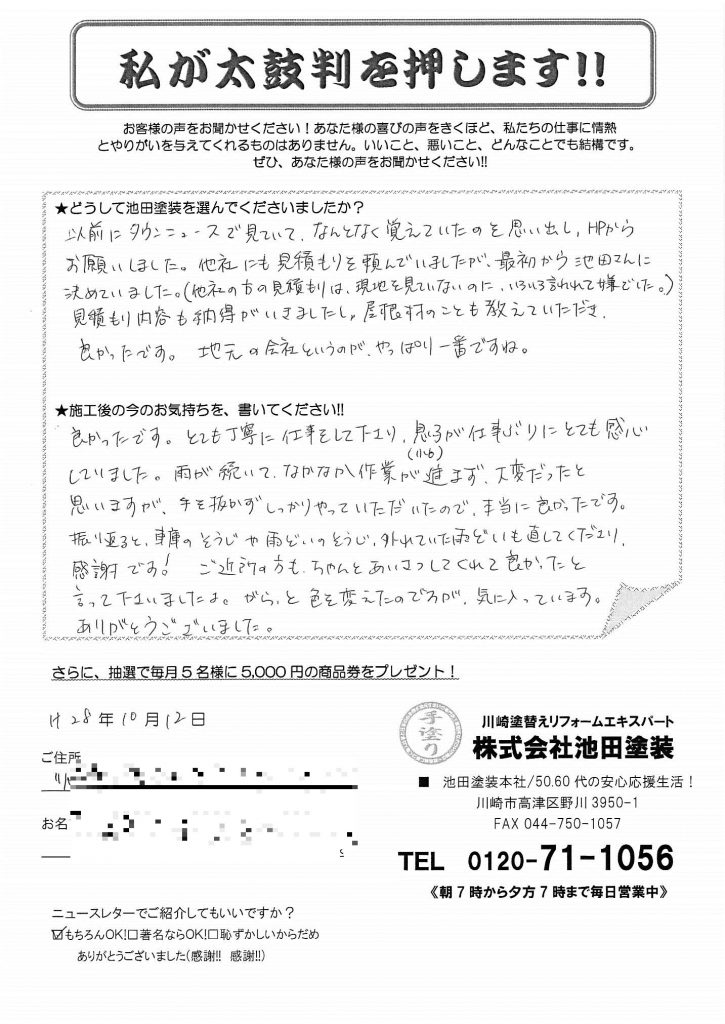 私が太鼓判を押します!!
お客様の声をお聞かせください！あなた様の喜びの声をきくほど、私たちの仕事に情熱
とやりがいを与えてくれるものはありません。いいこと、悪いこと、どんなことでも結構です。
ぜひ、あなた様の声をお聞かせください!!
★どうして池田塗装を選んでくださいましたか？
以前にタウンニュースで見ていて、なんとなく覚えていたのを思い出し、HPから
お願いしました。他社にも見積もりを頼んでいましたが、最初から池田さんに
決めていました。(他社の方の見積もりは、現地を見ていないのに、いろいろ言われて嫌でした。)
見積もり内容も納得がいきましたし、屋根材のことも教えていただき、
良かったです。 地元の会社というのが、やっぱり一番ですね。
★施工後の今のお気持ちを、書いてください!!
良かったです。とても丁寧に仕事をして下さり、息子が仕事ぶりにとても感心
(小6)
していました。雨が続いて、なかなか作業が進まず、大変だったと
思いますが、手を抜かずしっかりやっていただいたので、本当に良かったです。
振り返ると、車庫のそうじや雨どいのそうじ、外れていた雨どいも直してくださり、
感謝です! ご近所の方も、ちゃんとあいさつしてくれて良かったと
言って下さいましたよ。がらっと色を変えたのですが、気に入っています。
ありがとうございました。
さらに、抽選で毎月5名様に5,000円の商品券をプレゼント！
H 28年10月12日
手塗り
川崎塗替えリフォームエキスパート
株式会社池田塗装
ご住所
■ 池田塗装本社/50.60代の安心応援生活！
川崎市高津区野川3950-1
お名
FAX 044-750-1057
TEL 0120-71-1056
《朝7時から夕方7時まで毎日営業中》
ニュースレターでご紹介してもいいですか？
☑もちろんOK!□著名ならOK!□恥ずかしいからだめ
ありがとうございました(感謝!! 感謝!!)